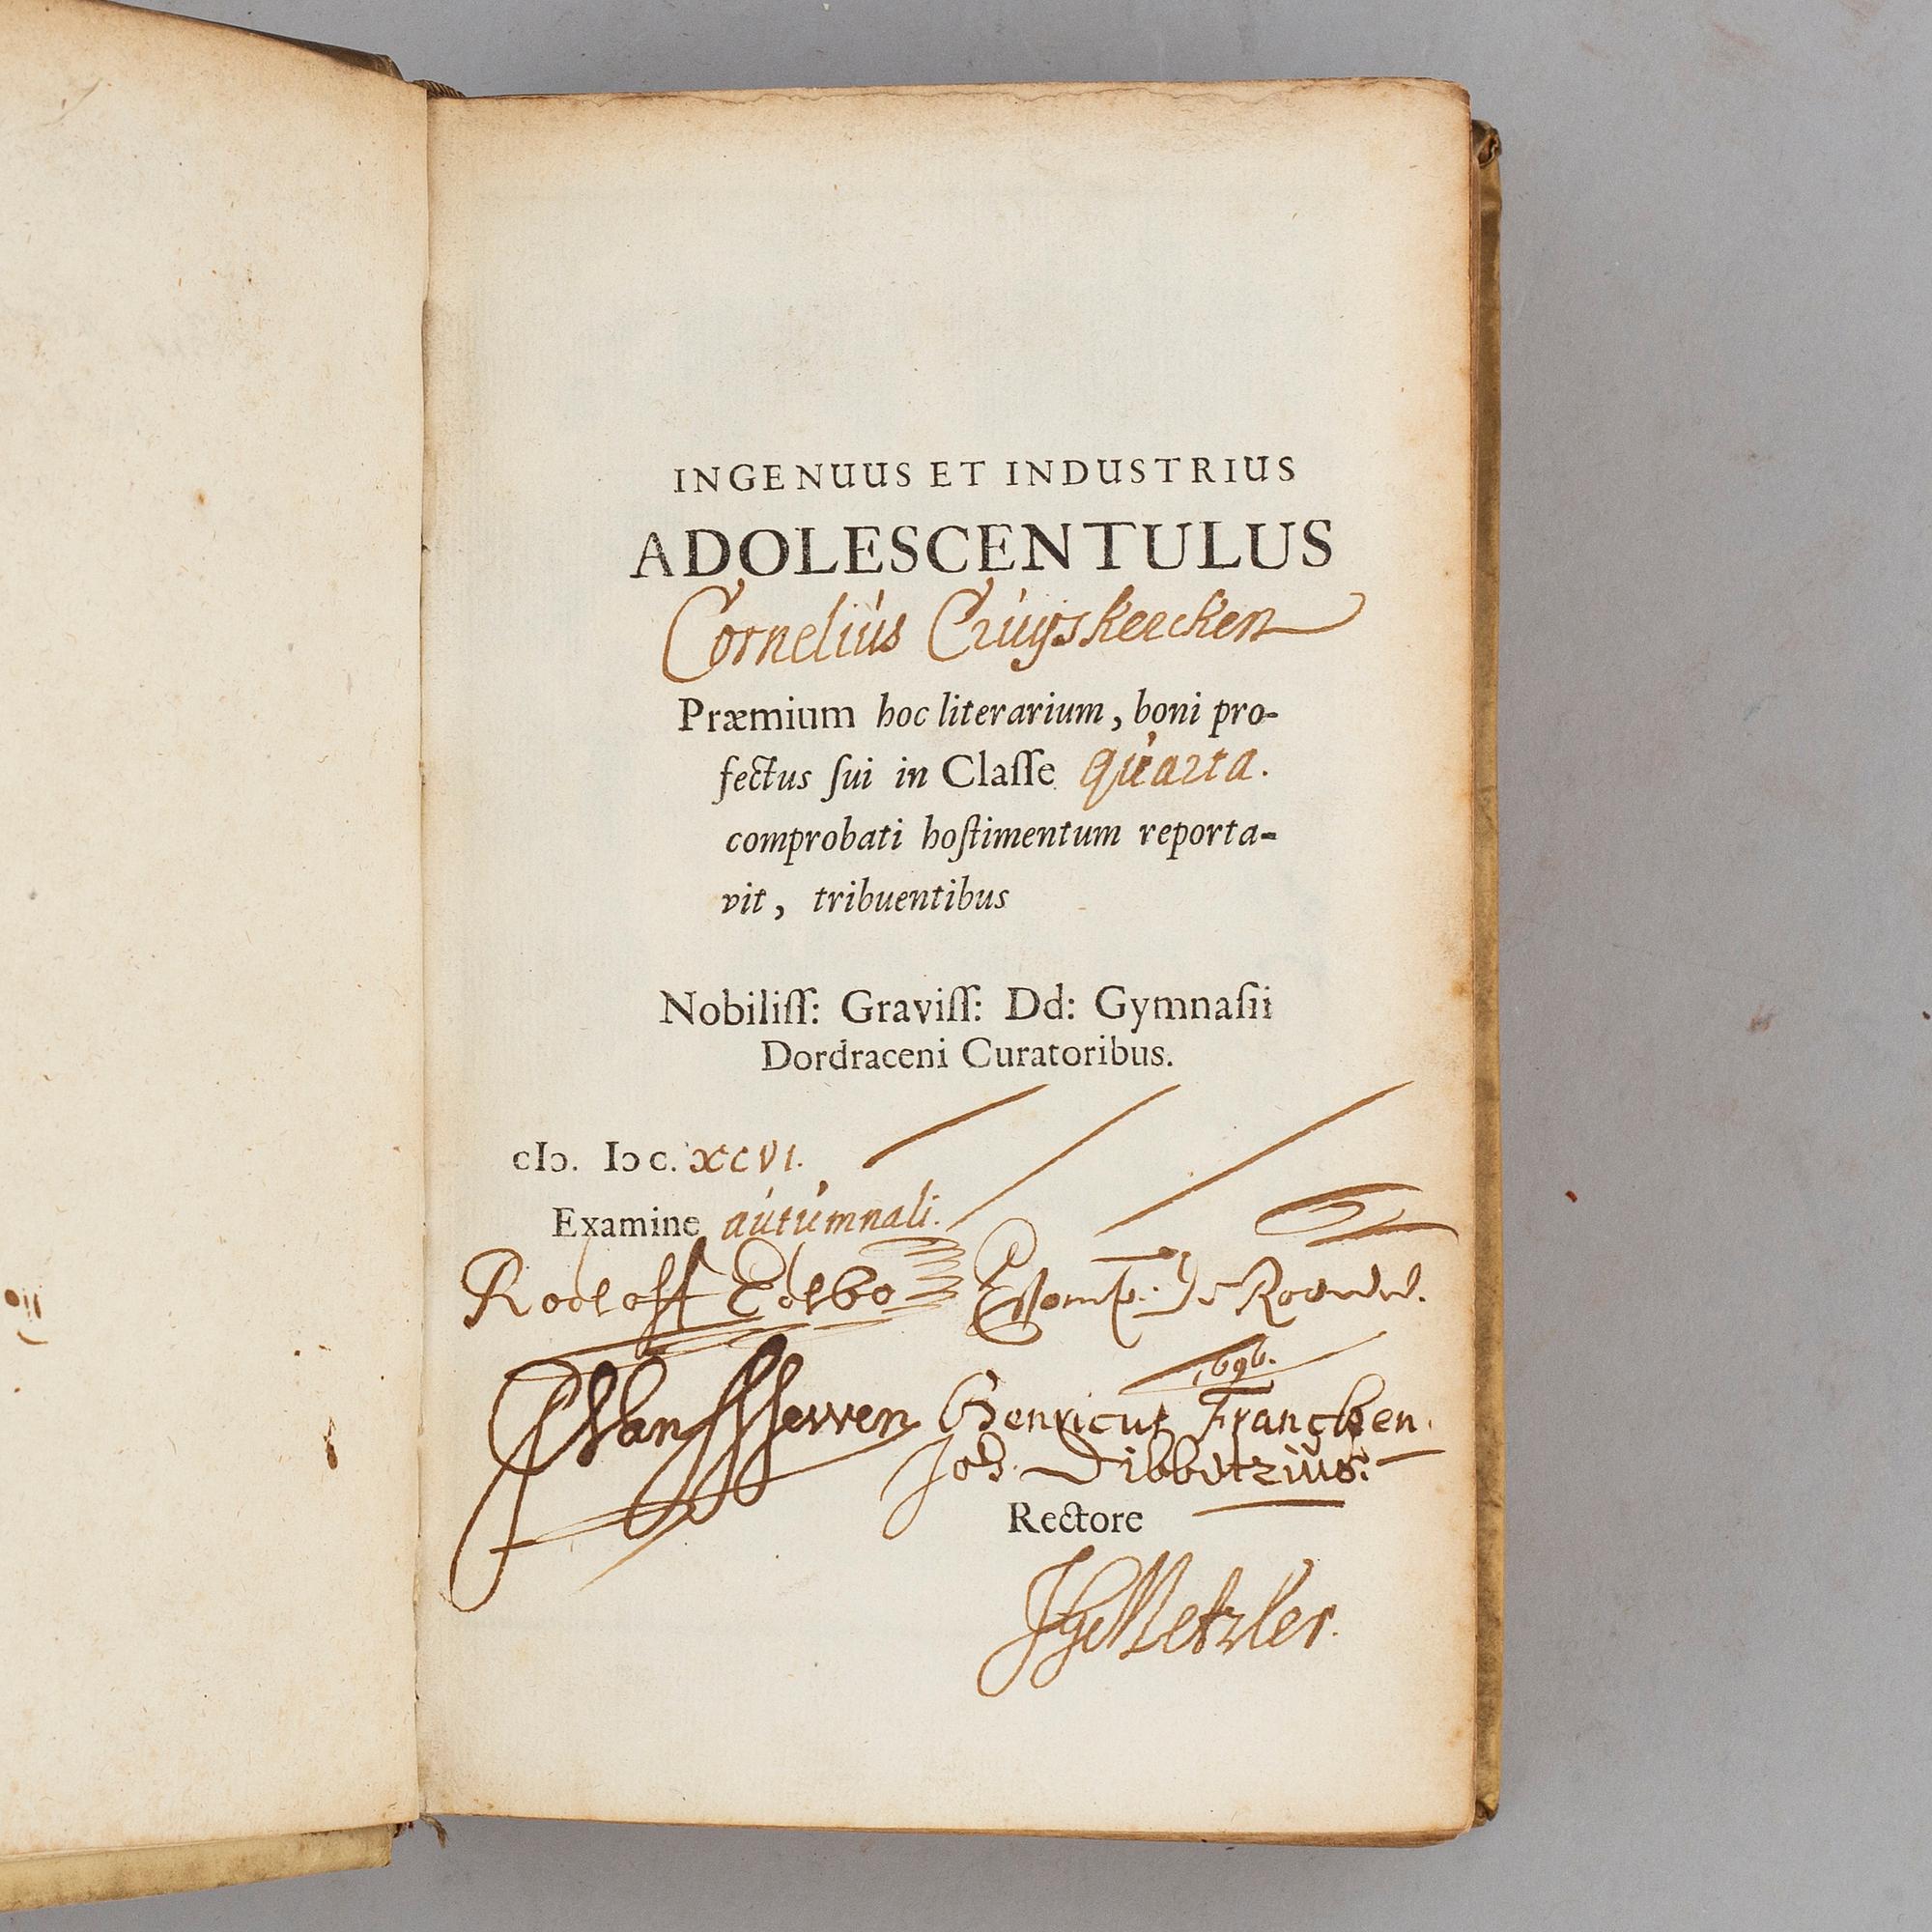 INGENUUS ET INDUSTRIUS
ADOLESCENTULUS
Cornelius Cruijskercken
Præmium hoc literarium, boni pro-
fectus ſui in Claſſe quarta.
comprobati hoſtimentum reporta-
vit, tribuentibus
Nobiliſſ: Graviſſ: Dd: Gymnaſii
Dordraceni Curatoribus.
cIɔ. Iɔ c. xcvi.
Examine autumnali.
Roeloff Eelbo
Pomp: de
1696.
Van
Henricus Francken.
Joh. Dibbetzius.
Rectore
Metzler.